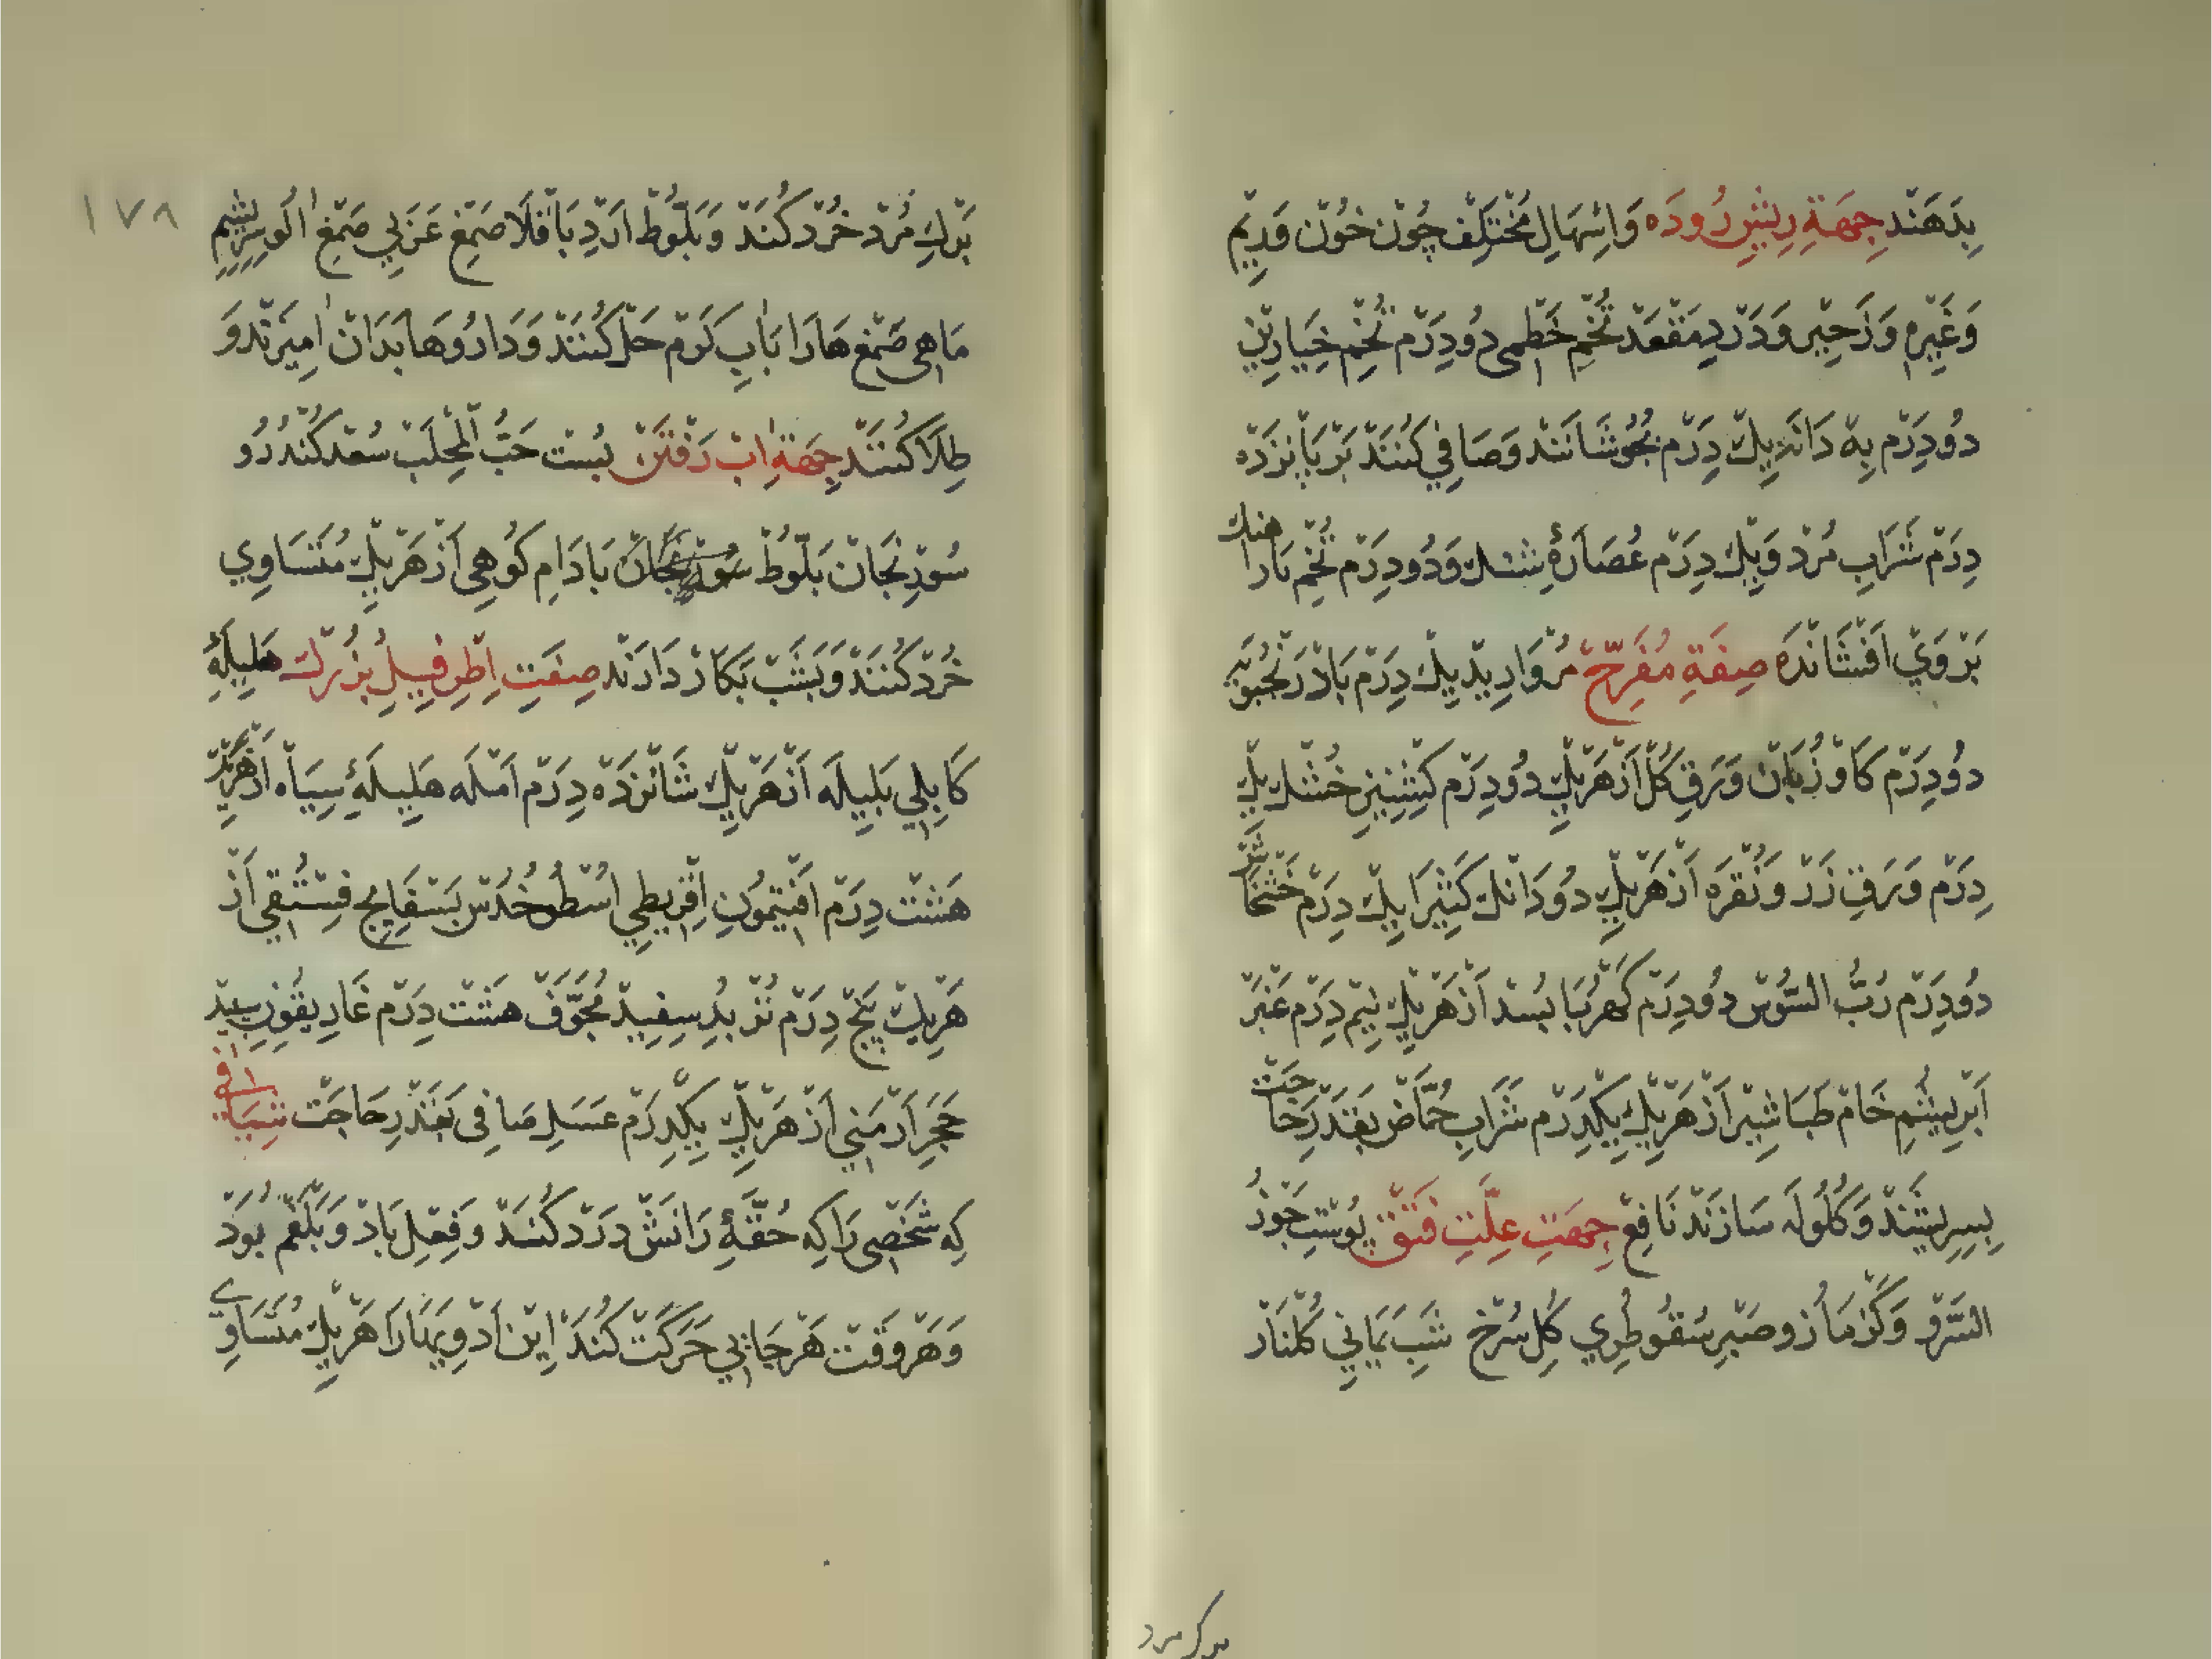 بِدَهَنْد جِهَةِ رِیشِ رُودَه وَاِسْهَالِ مُخْتَلِفْ چُونْ خُونْ وَدِیْم
وَغَیْرِهِ وَزَحِیْر وَدَرْدِ مَقْعَدْ تُخْمِ خَطْمِی دُودِرَمْ تُخْمِ خِیَارَیْنْ
دُودِرَمْ بِهْ دَانَه یِكْ دِرَمْ بِجُوشَانَنْد وَصَافِي كُنَنْدْ بَرْ پَانْزَدَه
دِرَمْ شَرَابِ مُرْد وَیِكْ دِرَمْ عُصَارَهٔ وَدُودِرَمْ تُخْمِ بَارْاهنك
بَرْ وَيْ اَفْشَانْدَه صِفَةِ مُفَرِّحْ مُرْوَارِیْد یِكْ دِرَمْ بَادْرَنْجُبُوْیَه
دُودِرَمْ كَاوْ زُبَانْ وَرَقِ كُلْ اَزْ هَرْیِكْ دُودِرَمْ كِشْنِیزِ خُشْك یِكْ
دِرَمْ وَرَقِ زَرْ وَنُقْرَه اَزْ هَرْیِكْ دُودَانْك كَثِیْرَا یِكْ دِرَمْ خَشْخَاشْ
دُودِرَمْ رُبُّ السُّوْسْ دُودِرَمْ كَهْرُبَا بُسَد اَزْ هَرْیِكْ نِیْم دِرَمْ عَنْبَرْ
اَبْرِیْشَمِ خَامْ طَبَاشِیْر اَزْ هَرْیِكْ یِكْدِرَمْ شَرَابِ حُمَّاضْ بَقَدْرِ حَاجَتْ
بِسِرِیشَنْدْ وَكُلُولَه سَازَنْدْ نَافِعْ جِهَتِ عِلَّتِ فَتْقْ پُوسْتِ جَوْزُ
السَّرْو وَكَزْمَازُو صَبْرِ سُقُوطْرِي كُلِ سُرْخْ شَبِّ یَمَانِي كُلْنَارْ
برك مرد
١٧٨
بَرْكِ مُرْد خُرْد كُنَنْدْ وَبَلُّوْطْ اَرْدِ بَاقِلَا صَمْغِ عَرَبِي صَمْغِ آلُو سِرِیْشِمِ
مَاهِی صَمْغْ هَارَا بَآبِ كَرَمْ حَلْ كُنَنْد وَدَارُوهَا بَدَانْ آمِیْزَنْد وَ
طِلَا كُنَنْد جِهَةِ آبْ رَفْتَنْ بُسْت حَبُّ الْمَحْلَبْ سُعْد كُنْدُرُو
سُوْرِنْجَانْ بَلُّوْطْ بَادَامِ كُوْهِی اَزْ هَرْیِكْ مُتَسَاوِي
خُرْد كُنَنْدْ وَبَشَبْ بَكَارْ دَارَنْد صِفَتِ اِطْرِفِیلِ بُزُرْكْ هَلِیلَهٔ
كَابِلِي بَلِیلَه اَزْ هَرْیِكْ شَانْزَدَه دِرَمْ اَمْلَه هَلِیلَهٔ سِیَاه اَزْهَرْیِكْ
هَشْتْ دِرَمْ اَفْتِیْمُونِ اِقْرِیطِي اُسْطُوخُدُسْ بَسْفَایِجِ فِسْتُقِي اَزْ
هَرْیِكْ پَنْجْ دِرَمْ تُرْبُدِ سِفِیدْ مُجَوَّفْ هَشْتْ دِرَمْ غَارِیقُونِ سپید
حَجَرِ اَرْمَنِي اَزْ هَرْیِكْ یِكْدِرَمْ عَسَلِ صَافِی بَقَدْرِ حَاجَتْ شِیَافِی
كِه شَخْصِی رَا كِه حُقَّهٔ رَانَشْ دَرْد كُنَدْ وَفِعْلِ بَادْ وَبَلْغَمْ بُوَدْ
وَهَرْ وَقْتْ هَرْ جَانِبِي حَرَكَتْ كُنَدْ اِیْن اَدْوِیَهَارَا هَرْیِكْ مُتَسَاوِي